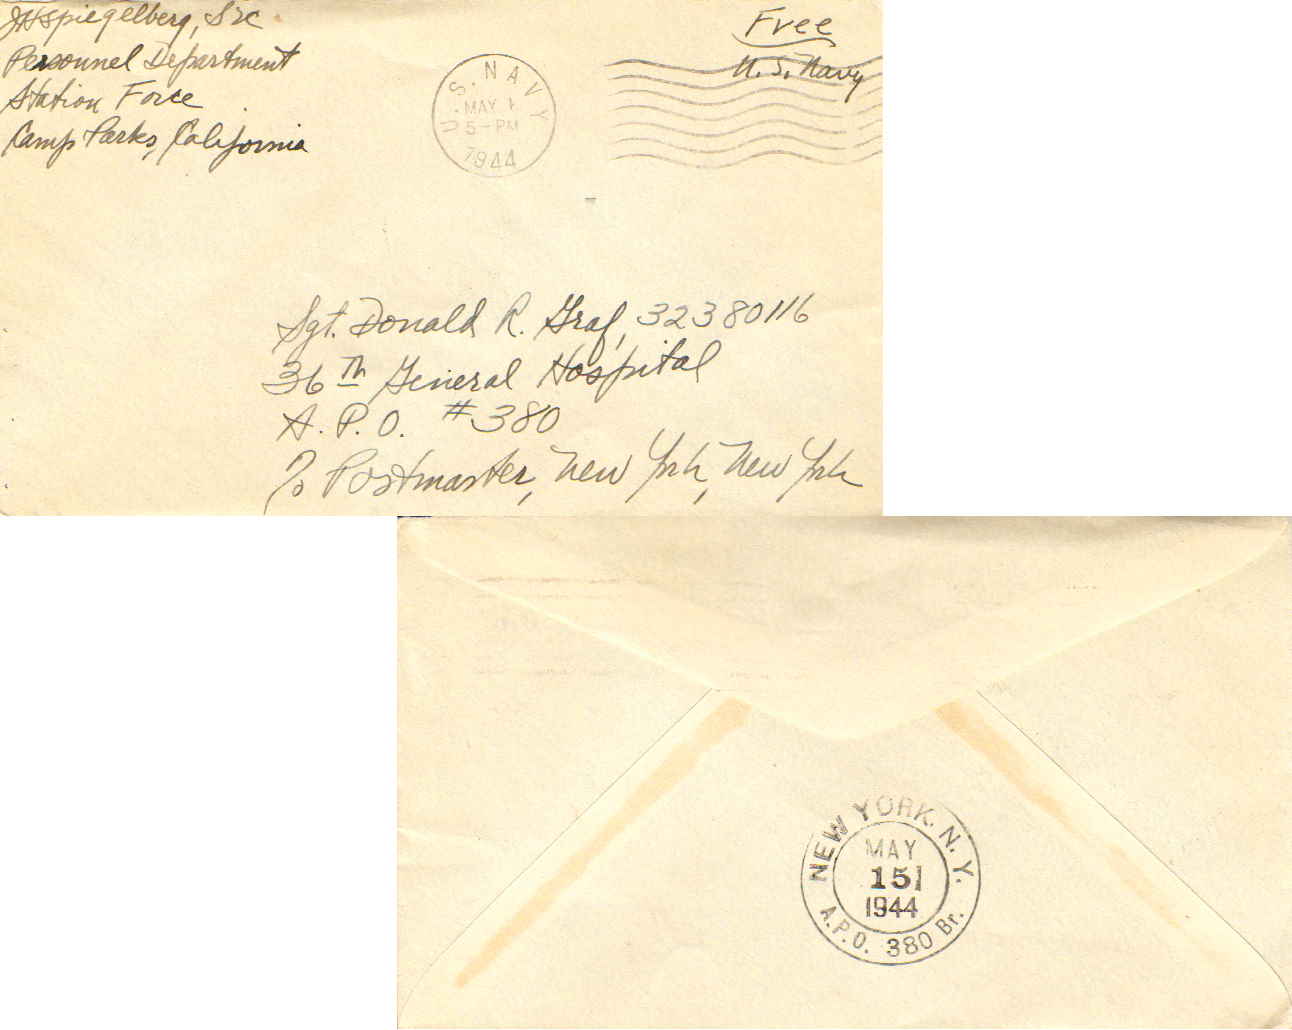 JHSpiegelberg, S2C
Personnel Department
Station Force
Camp Parks, California
Free
U.S. Navy
U.S. NAVY
MAY 1
5-PM
1944
Sgt. Donald R. Graf, 32380116
36th General Hospital
A.P.O. #380
% Postmaster, New York, New York
NEW YORK. N.Y.
MAY
15
1944
A.P.O. 380 Br.